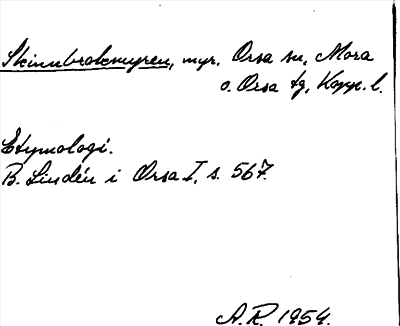 Skinnbroksmyren, myr, Orsa sn, Mora
o. Orsa tg, Kopp. l.
Etymologi.
B. Lindén i Orsa I, s. 567.
A.R. 1954.